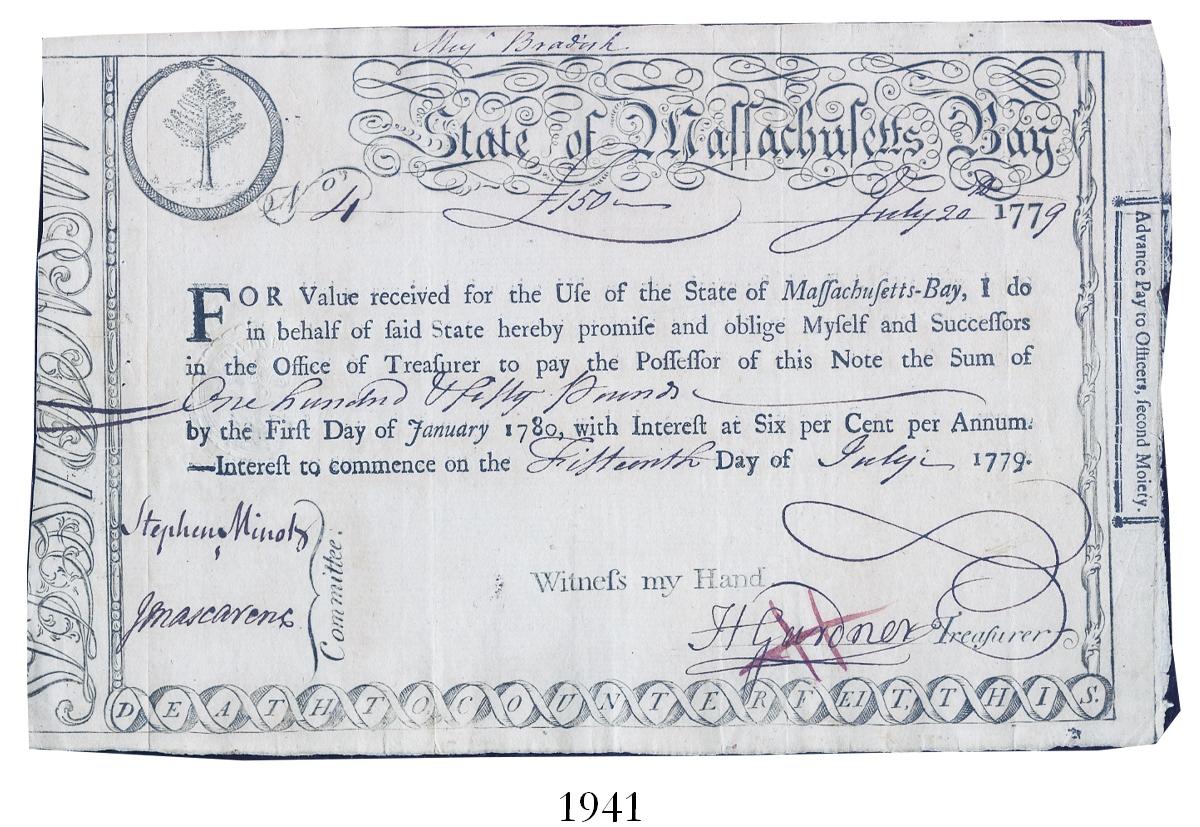 Maj.r Bradish.
State of Maſſachuſetts Bay
No. 4 £150 July 20th 1779
FOR Value received for the Uſe of the State of Maſſachuſetts-Bay, I do
in behalf of ſaid State hereby promiſe and oblige Myſelf and Succeſſors
in the Office of Treaſurer to pay the Poſſeſſor of this Note the Sum of
One hundred & fifty Pounds
by the Firſt Day of January 1780, with Intereſt at Six per Cent per Annum.
—Intereſt to commence on the Fifteenth Day of July 1779.
Stephen Minot
Jmascarene
Committee.
Witneſs my Hand
HGardner Treaſurer
DEATH TO COUNTERFEIT, THIS.
Advance Pay to Officers, ſecond Moiety.
1941